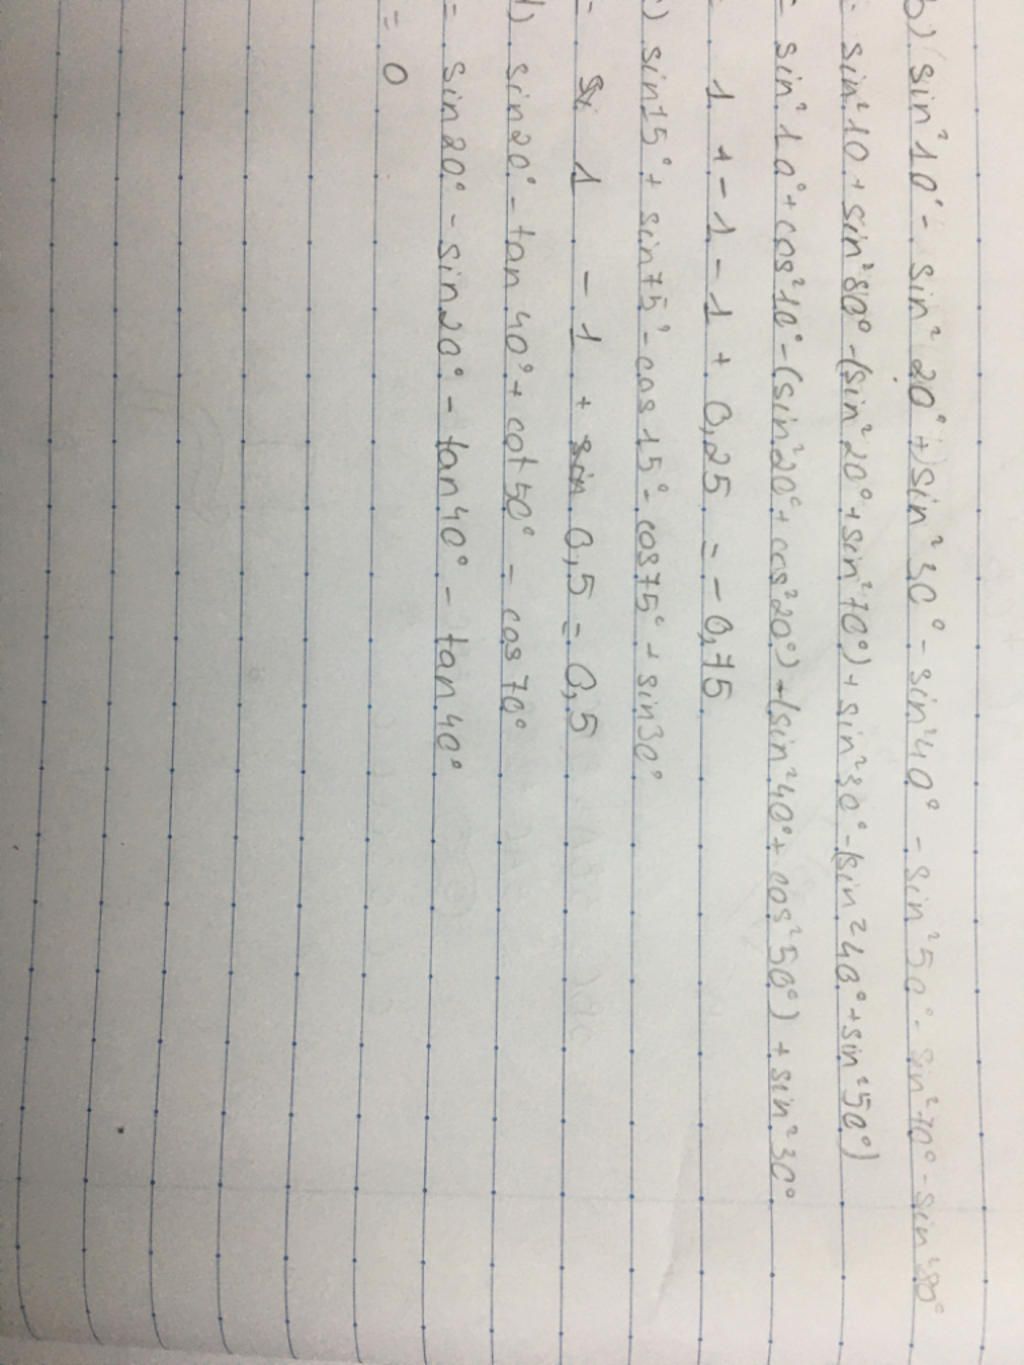 b) sin²10° - sin²20° + sin²30° - sin²40° - sin²50° - sin²70° - sin²80°
= sin²10 + sin²80° - (sin²20° + sin²70°) + sin²30° - (sin²40° + sin²50°)
= sin²10° + cos²10° - (sin²20° + cos²20°) - (sin²40° + cos²50°) + sin²30°
1 + - 1 - 1 + 0,25 = - 0,75
c) sin15° + sin75° - cos15° - cos75° + sin30°
= 1 - 1 + 0,5 = 0,5
d) sin20° - tan40° + cot50° - cos70°
= sin20° - sin20° - tan40° - tan40°
= 0